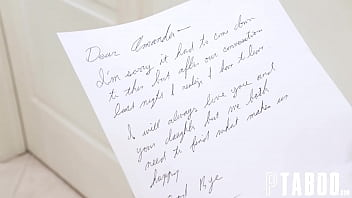 Dear Amanda -
I'm sorry it had to come down
to this but after our conversation
last night I realize I have to leave.
I will always love you and
your daughter but we both
need to find what makes us
happy
Good Bye
PTABOO.COM